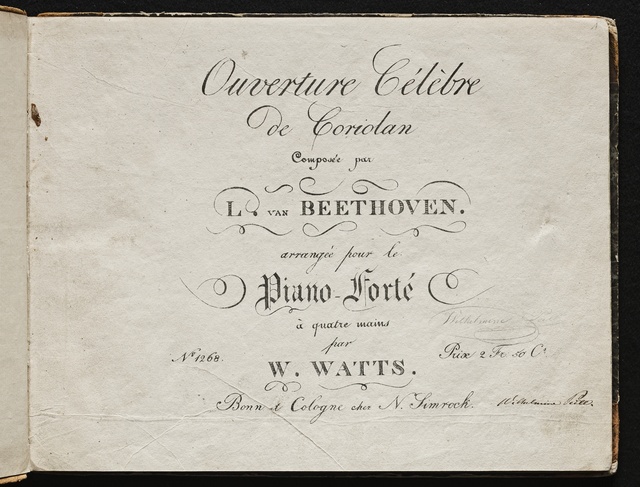 Ouverture Célèbre
de Coriolan
Composée par
L. VAN BEETHOVEN.
arrangée pour le
Piano-Forté
à quatre mains
par
W. WATTS.
Nº 1268.
Prix 2 Fr 50 Cs
Bonn et Cologne chez N. Simrock.
Wilhelmine